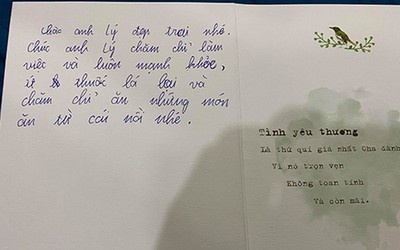 chúc anh Lý đẹp trai nhé.
Chúc anh Lý chăm chỉ làm
việc và luôn mạnh khỏe,
ít thuốc lá lại và
chăm chỉ ăn những món
ăn từ cái nồi nhé.
Tình yêu thương
Là thứ quí giá nhất Cha dành
Vì nó trọn vẹn
Không toan tính
Và còn mãi.